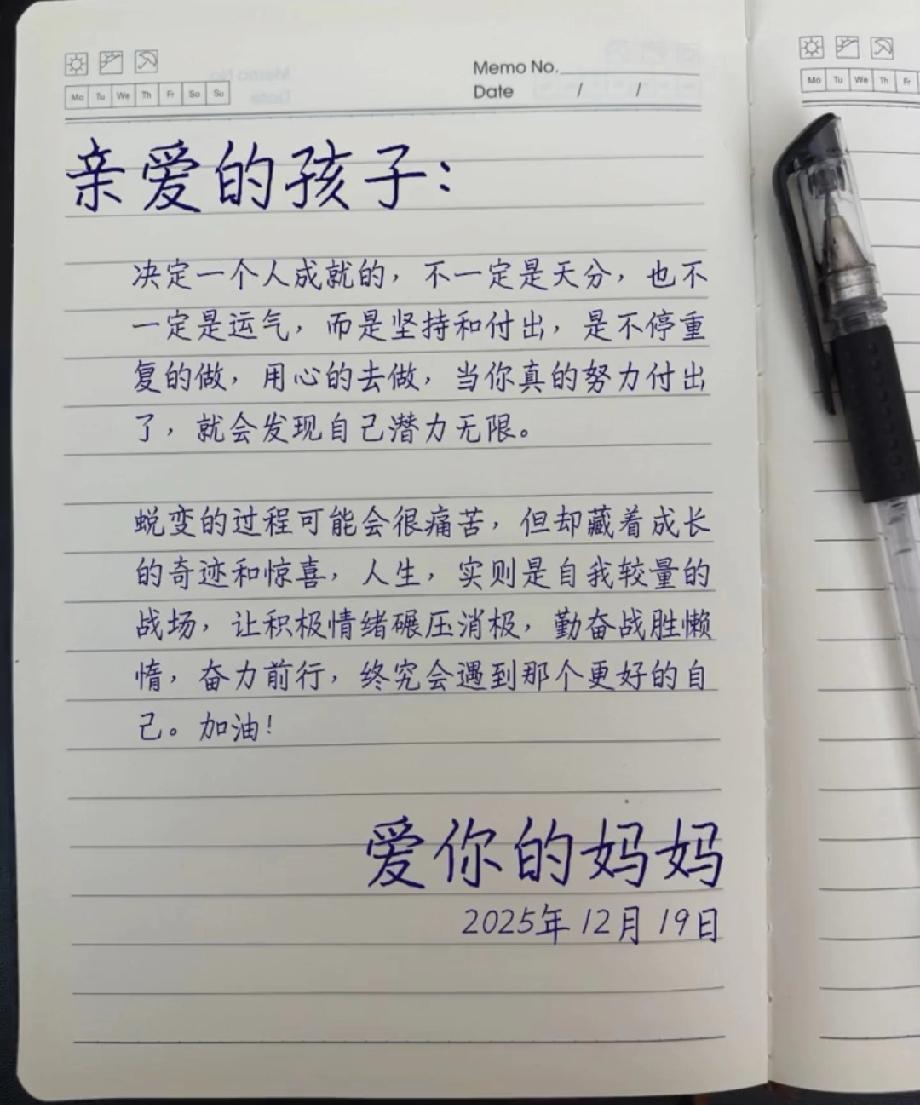 Memo No.
Date / /
Mo Tu We Th Fr Sa Su
Mo Tu We Th Fr
亲爱的孩子：
决定一个人成就的，不一定是天分，也不
一定是运气，而是坚持和付出，是不停重
复的做，用心的去做，当你真的努力付出
了，就会发现自己潜力无限。
蜕变的过程可能会很痛苦，但却藏着成长
的奇迹和惊喜，人生，实则是自我较量的
战场，让积极情绪碾压消极，勤奋战胜懒
惰，奋力前行，终究会遇到那个更好的自
己。加油！
爱你的妈妈
2025年12月19日